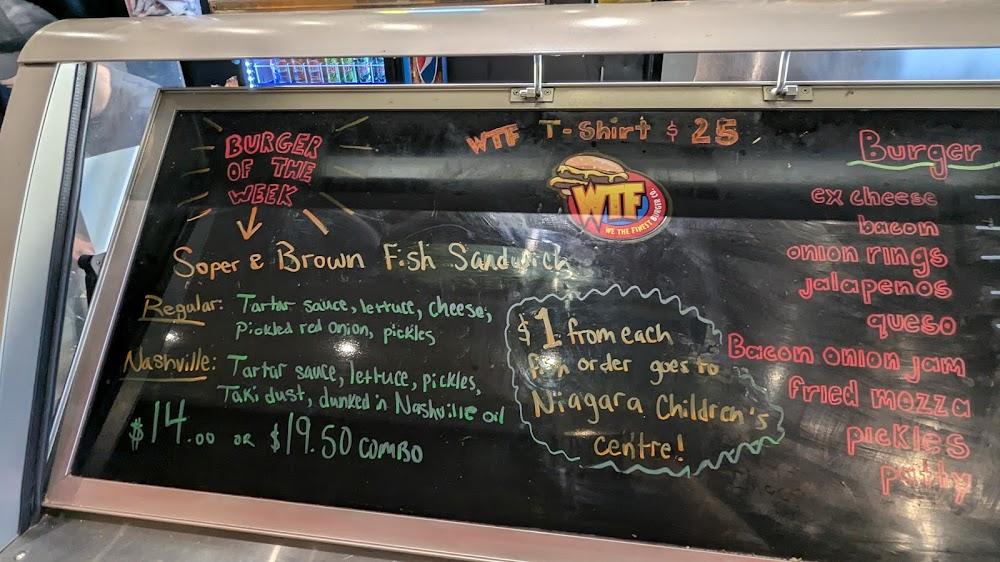 BURGER
OF THE
WEEK
Soper & Brown Fish Sandwich
Regular: Tartar sauce, lettuce, cheese,
Pickled red onion, pickles
Nashville: Tartar sauce, lettuce, pickles,
Taki dust, dunked in Nashville oil
$14.00 OR $19.50 COMBO
WTF T-Shirt $25
WTF
WE THE FINEST BURGER CO.
$1 from each
fish order goes to
Niagara Children's
Centre!
Burger
ex cheese
bacon
onion rings
jalapenos
queso
Bacon onion jam
fried mozza
pickles
patty